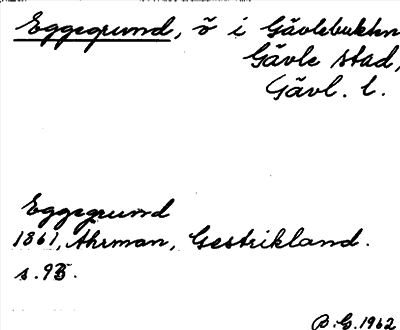 Eggegrund, ö i Gävlebukten
Gävle stad,
Gävl. l.
Eggegrund
1861, Ahrman, Gestrikland.
s. 95.
B.G. 1962